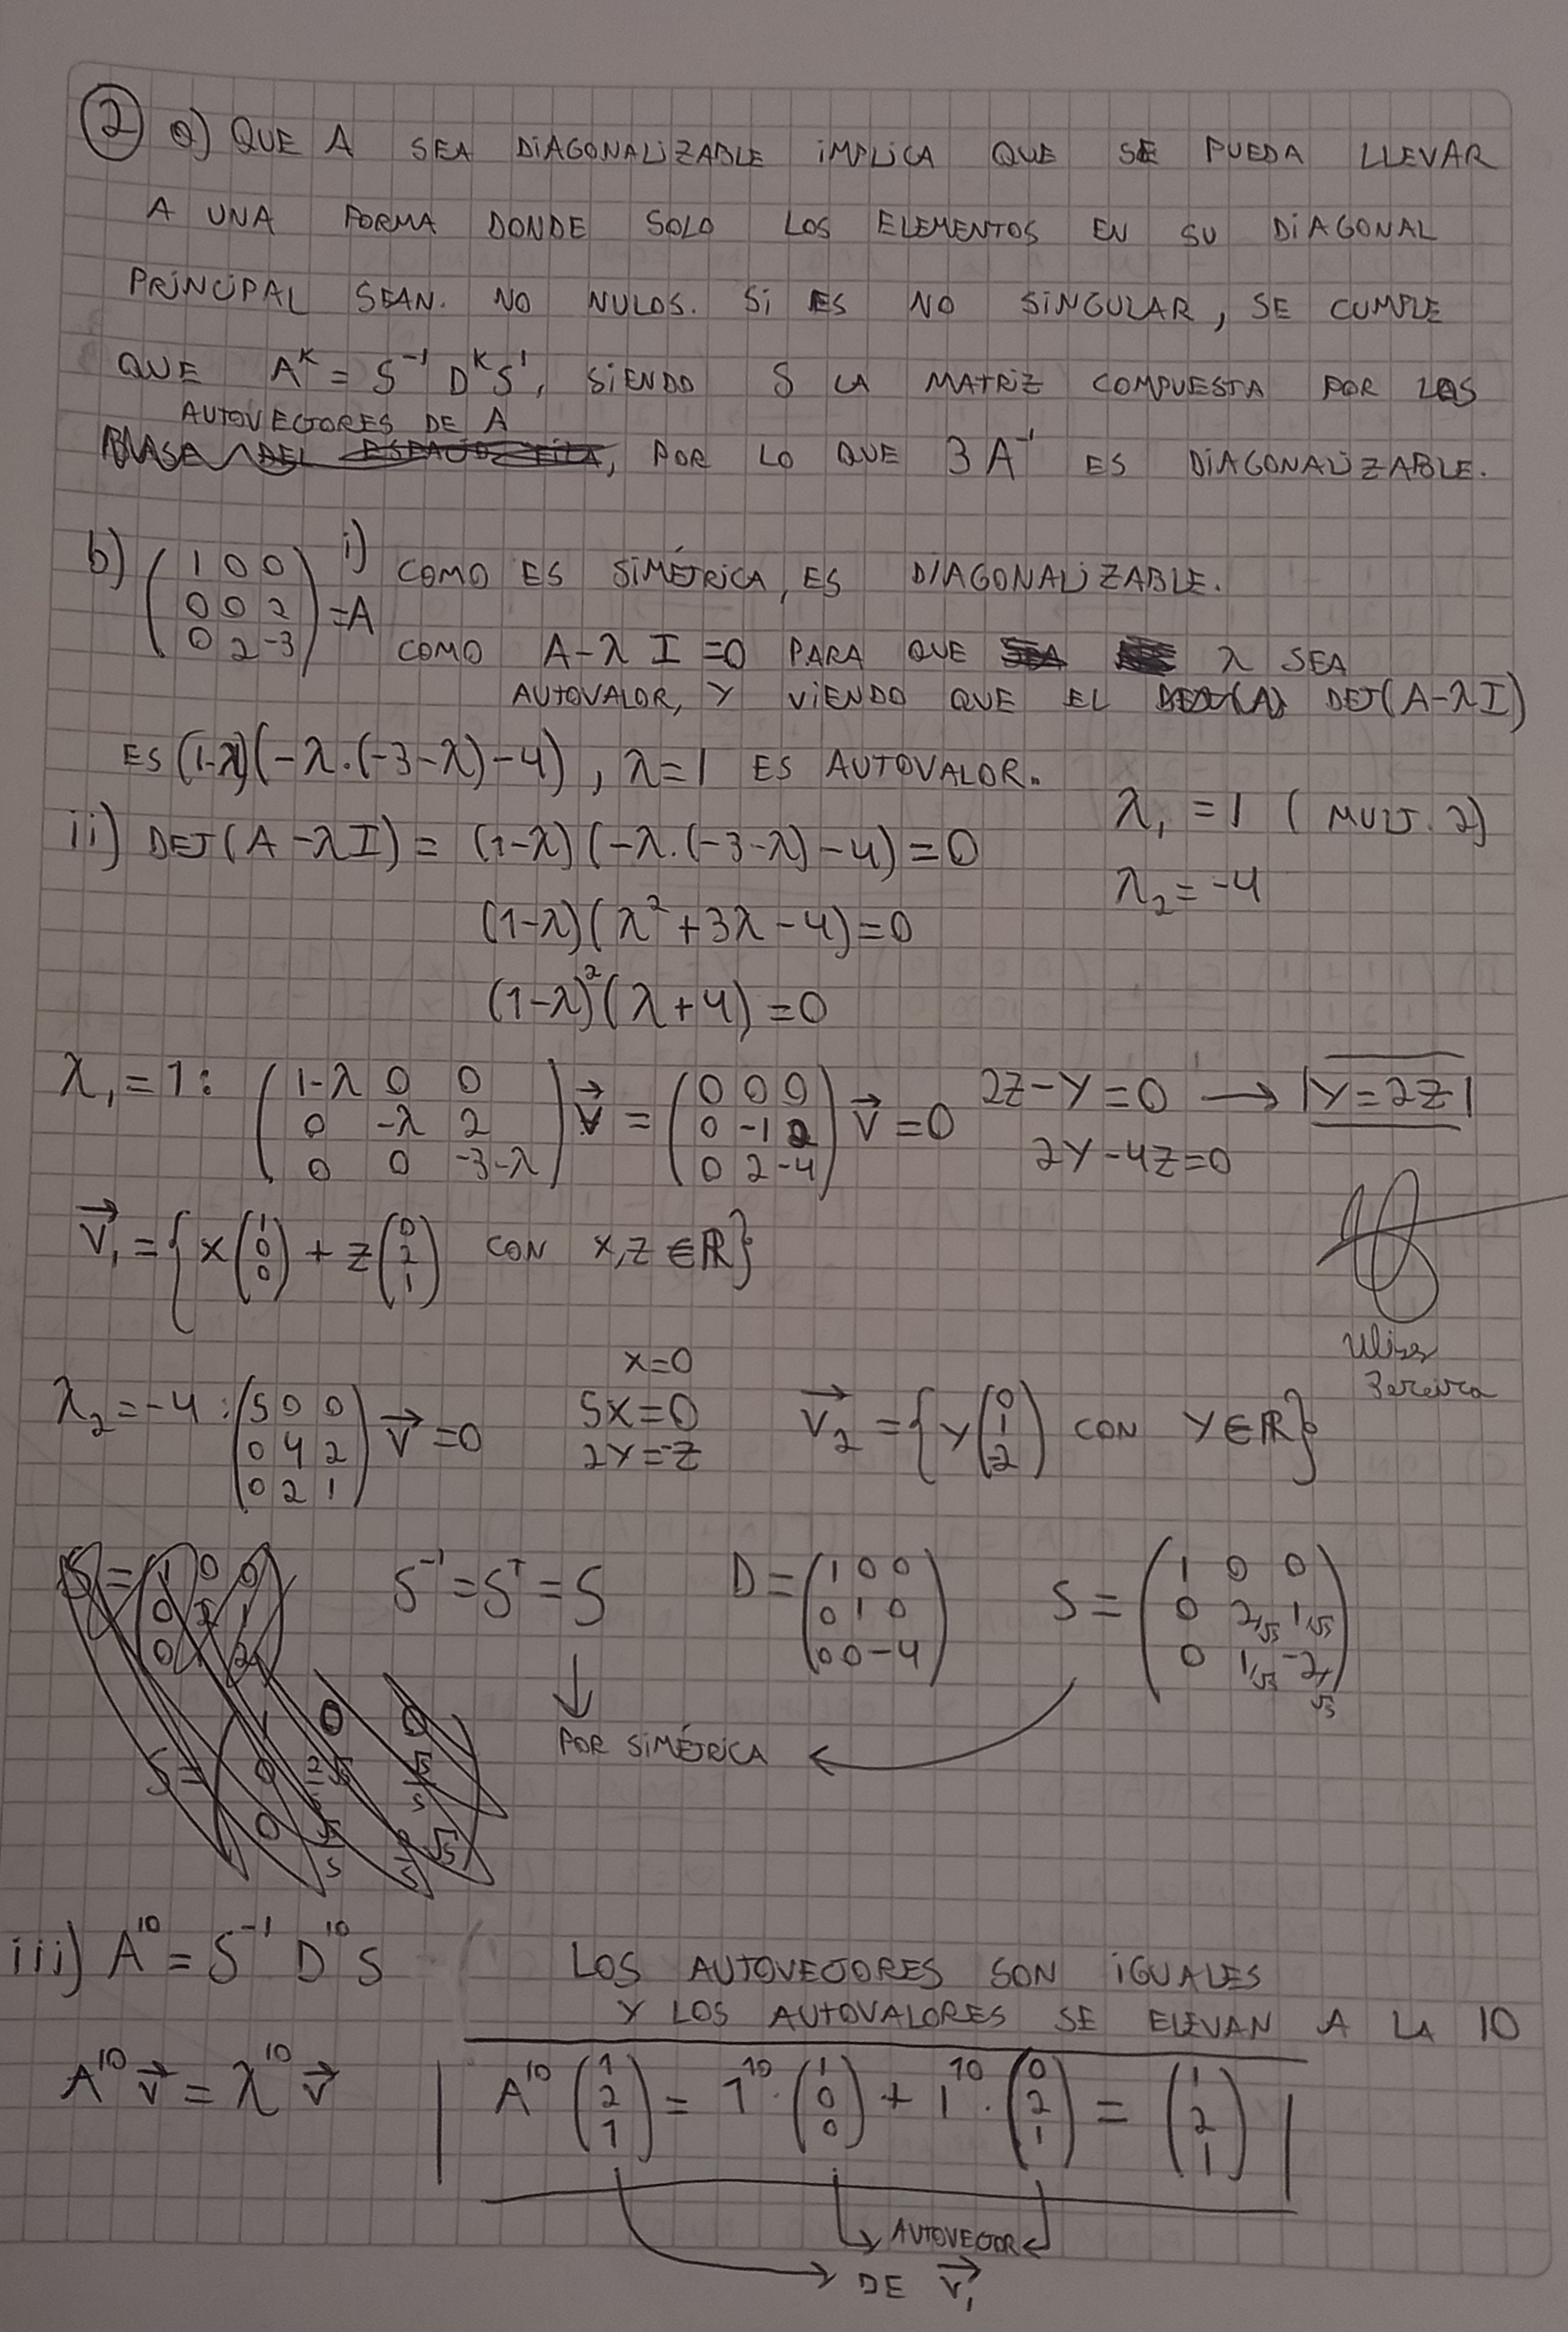 ② a) QUE A SEA DIAGONALIZABLE IMPLICA QUE SE PUEDA LLEVAR
A UNA FORMA DONDE SOLO LOS ELEMENTOS EN SU DIAGONAL
PRINCIPAL SEAN. NO NULOS. SI ES NO SINGULAR, SE CUMPLE
QUE A^K = S^-1 D^K S^1, SIENDO S LA MATRIZ COMPUESTA POR LOS
AUTOVECTORES DE A
, POR LO QUE 3A^-1 ES DIAGONALIZABLE.
b) (1 0 0; 0 0 2; 0 2 -3) = A i) COMO ES SIMÉTRICA, ES DIAGONALIZABLE.
COMO A-λI=0 PARA QUE λ SEA
AUTOVALOR, Y VIENDO QUE EL DET(A-λI)
ES (1-λ)(-λ.(-3-λ)-4), λ=1 ES AUTOVALOR.
ii) DET(A-λI) = (1-λ)(-λ.(-3-λ)-4)=0
λ₁ = 1 (MULT. 2)
λ₂ = -4
(1-λ)(λ²+3λ-4)=0
(1-λ)²(λ+4)=0
λ₁=1: (1-λ 0 0; 0 -λ 2; 0 0 -3-λ) v⃗ = (0 0 0; 0 -1 2; 0 2 -4) v⃗ = 0 2Z-Y=0 → |Y=2Z|
2Y-4Z=0
v⃗₁ = {x(1; 0; 0) + z(0; 2; 1) CON x,z ∈ ℝ}
Ulises
Pereira
x=0
λ₂=-4: (5 0 0; 0 4 2; 0 2 1) v⃗ = 0 5x=0 v⃗₂ = {y(0; 1; -2) CON Y∈ℝ}
2Y=-Z
S^-1 = S^T = S D = (1 0 0; 0 1 0; 0 0 -4) S = (1 0 0; 0 2/√5 1/√5; 0 1/√5 -2/√5)
↓
POR SIMÉTRICA ←
iii) A^10 = S^-1 D^10 S LOS AUTOVECTORES SON IGUALES
Y LOS AUTOVALORES SE ELEVAN A LA 10
A^10 v⃗ = λ^10 v⃗ | A^10 (1; 2; 1) = 1^10 . (1; 0; 0) + 1^10 . (0; 2; 1) = (1; 2; 1) |
→ AUTOVECTOR ←
→ DE v⃗₁